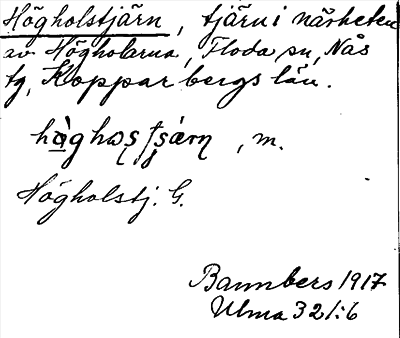 Högholstjärn, tjärn i närheten
av Högholarna, Floda sn, Nås
tg, Kopparbergs län.
, m.
Högholstj. G.
Bannbers 1917
Ulma 321:6